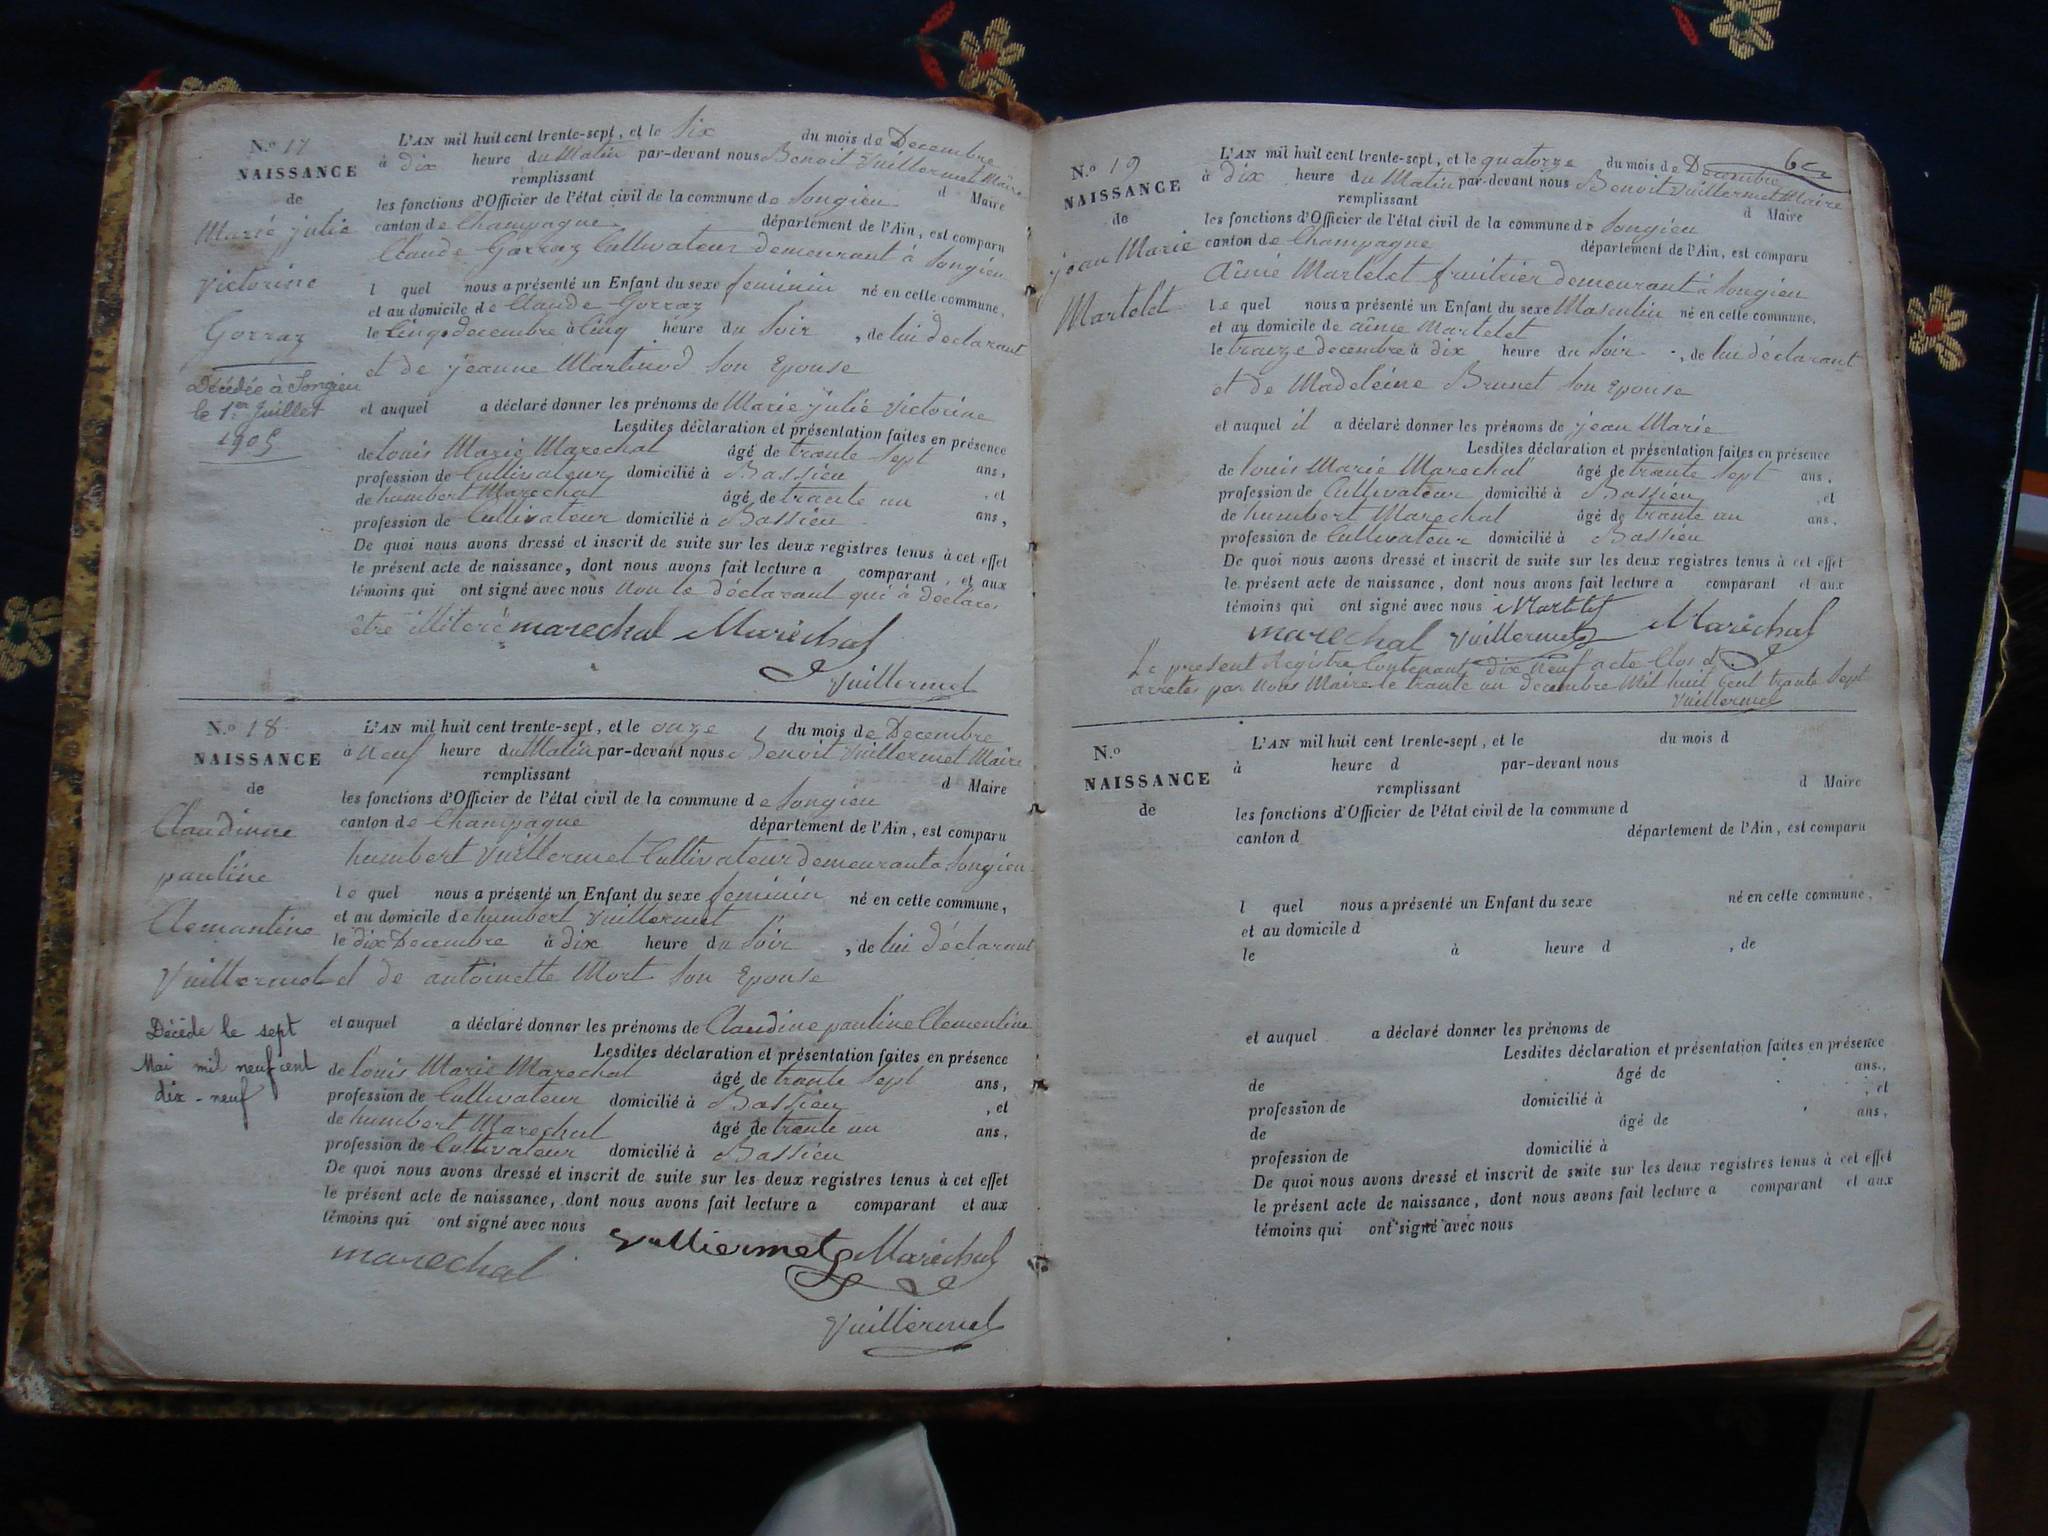 N.o 17
NAISSANCE
de
Marie julie
victorine
Gorraz
Décédée à Songieu
le 1er Juillet
1905
L'AN mil huit cent trente-sept, et le Six du mois de Decembre
à dix heure du Matin par-devant nous Benoit Vuillermet Maire
remplissant d Maire
les fonctions d'Officier de l'état civil de la commune de Songieu
canton de Champagne département de l'Ain, est comparu
Claude Gorraz Cultivateur demeurant à Songieu
l quel nous a présenté un Enfant du sexe feminin né en cette commune,
et au domicile de Claude Gorraz
le Cinq decembre à Cinq heure du Soir, de lui déclarant
et de jeanne Martinod Son Epouse
et auquel a déclaré donner les prénoms de Marie julie victorine
Lesdites déclaration et présentation faites en présence
de louis Marie Marechal âgé de trante Sept ans,
profession de Cultivateur domicilié à Bassieu
de humbert Marechal âgé de trante un , et
profession de Cultivateur domicilié à Bassieu ans,
De quoi nous avons dressé et inscrit de suite sur les deux registres tenus à cet effet
le présent acte de naissance, dont nous avons fait lecture a comparant, et aux
témoins qui ont signé avec nous non le déclarant qui à déclaré
être illiteré marechal Maréchal
Vuillermet
N.o 18
NAISSANCE
de
Claudinne
pauline
Clemantine
Vuillermet
Décède le sept
Mai mil neuf cent
dix-neuf
L'AN mil huit cent trente-sept, et le onze du mois de Decembre
à Neuf heure du Matin par-devant nous Benoit Vuillermet Maire
remplissant d Maire
les fonctions d'Officier de l'état civil de la commune de Songieu
canton de Champagne département de l'Ain, est comparu
humbert Vuillermet Cultivateur demeurant à Songieu
le quel nous a présenté un Enfant du sexe feminin né en cette commune,
et au domicile de humbert Vuillermet
le dix Decembre à dix heure du Soir, de lui déclarant
et de antoinette Mort Son Epouse
et auquel a déclaré donner les prénoms de Claudine pauline Clementine
Lesdites déclaration et présentation faites en présence
de louis Marie Marechal âgé de trante Sept ans,
profession de Cultivateur domicilié à Bassieu , et
de humbert Marechal âgé de trante un ans,
profession de Cultivateur domicilié à Bassieu
De quoi nous avons dressé et inscrit de suite sur les deux registres tenus à cet effet
le présent acte de naissance, dont nous avons fait lecture a comparant et aux
témoins qui ont signé avec nous
marechal Vuilliermet Maréchal
Vuillermet
N.o 19
NAISSANCE
de
jean Marie
Martelet
L'AN mil huit cent trente-sept, et le quatorze du mois de Decembre
à dix heure du Matin par-devant nous Benoit Vuillermet Maire
remplissant d Maire
les fonctions d'Officier de l'état civil de la commune de Songieu
canton de Champagne département de l'Ain, est comparu
aîmé Martelet fruitrier demeurant à Songieu
le quel nous a présenté un Enfant du sexe Masculin né en cette commune,
et au domicile de aimé Martelet
le traize decembre à dix heure du Soir, de lui déclarant
et de Madeleine Brunet Son Epouse
et auquel il a déclaré donner les prénoms de jean Marie
Lesdites déclaration et présentation faites en présence
de louis Marie Marechal âgé de trante Sept ans,
profession de Cultivateur domicilié à Bassieu , et
de humbert Marechal âgé de trante un ans,
profession de Cultivateur domicilié à Bassieu
De quoi nous avons dressé et inscrit de suite sur les deux registres tenus à cet effet
le présent acte de naissance, dont nous avons fait lecture a comparant et aux
témoins qui ont signé avec nous Martelet
marechal Vuillermet Maréchal
Le present Registre Contenant dix neuf acte Clos et
arretés par nous Maire le trante un decembre Mil huit Cent trante Sept
Vuillermet
N.o
NAISSANCE
de
L'AN mil huit cent trente-sept, et le du mois d
à heure d par-devant nous
remplissant d Maire
les fonctions d'Officier de l'état civil de la commune d
canton d département de l'Ain, est comparu
l quel nous a présenté un Enfant du sexe né en cette commune,
et au domicile d
le à heure d , de
et auquel a déclaré donner les prénoms de
Lesdites déclaration et présentation faites en présence
de âgé de ans,
profession de domicilié à , et
de âgé de ans,
profession de domicilié à
De quoi nous avons dressé et inscrit de suite sur les deux registres tenus à cet effet
le présent acte de naissance, dont nous avons fait lecture a comparant et aux
témoins qui ont signé avec nous